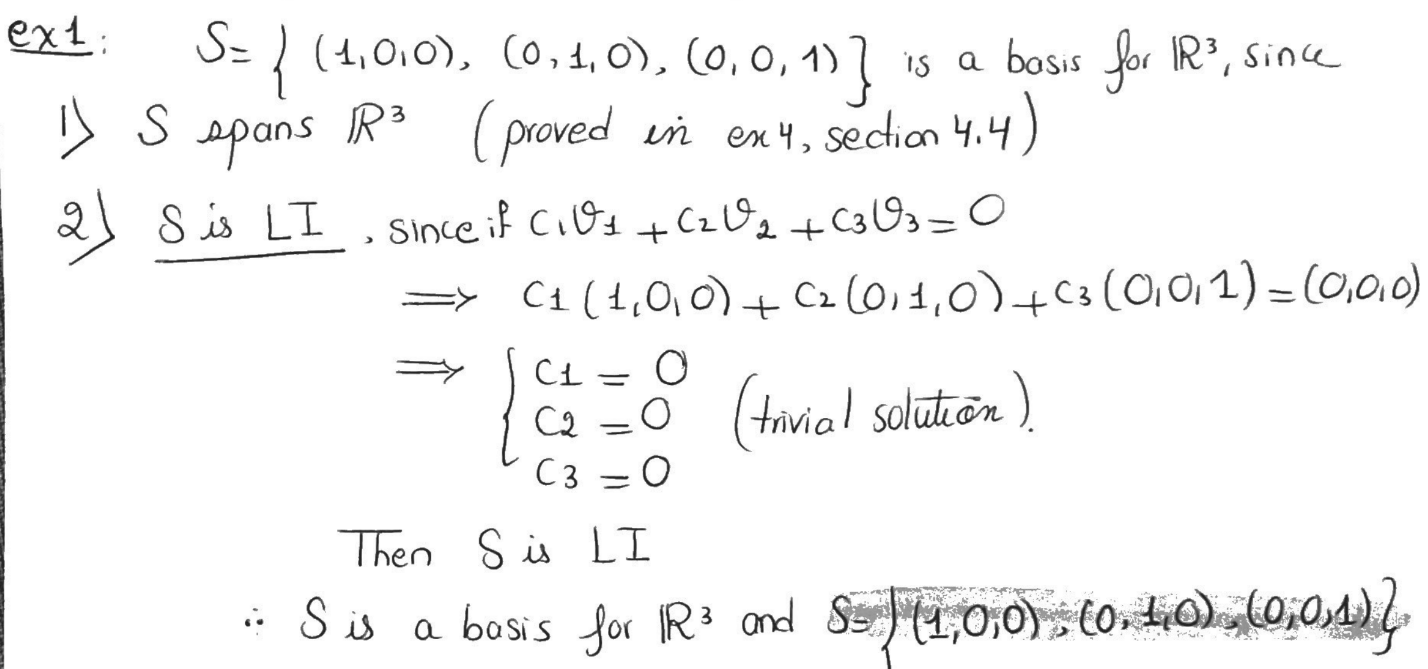 ex1: S= { (1,0,0), (0,1,0), (0,0,1) } is a basis for ℝ³, since
1) S spans ℝ³ (proved in ex 4, section 4.4)
2) S is LI, since if C₁V₁ + C₂V₂ + C₃V₃ = 0
⟹ C₁ (1,0,0) + C₂ (0,1,0) + C₃ (0,0,1) = (0,0,0)
⟹ { C₁ = 0
C₂ = 0 (trivial solution).
C₃ = 0
Then S is LI
∴ S is a basis for ℝ³ and S= { (1,0,0), (0,1,0), (0,0,1) }